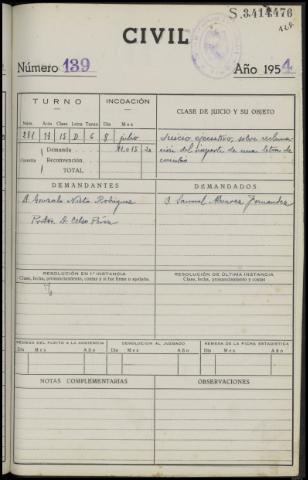 S.3414476
CIVIL
Número 139
Año 1954
TURNO
INCOACIÓN
CLASE DE JUICIO Y SU OBJETO
Núm. Acta Clase Letra Tomo Día Mes
15 D 6 8 julio
Juicio ejecutivo, sobre reclama-
ción del importe de una letra de
cambio
Demanda
Cuantía Reconvención
TOTAL
DEMANDANTES
DEMANDADOS
D. Gonzalo Nieto Rodríguez
D. Samuel Alvarez Fernandez
Prdor. D. Celso
RESOLUCIÓN EN 1.ª INSTANCIA
Clase, fecha, pronunciamiento, costas y si fué firme o apelada.
RESOLUCIÓN DE ÚLTIMA INSTANCIA
Clase, fecha, pronunciamiento y costas
REMESA DEL PLEITO A LA AUDIENCIA
DEVOLUCION AL JUZGADO
REMESA DE LA FICHA ESTADÍSTICA
Día Mes Año Día Mes Año Día Mes Año
NOTAS COMPLEMENTARIAS
OBSERVACIONES